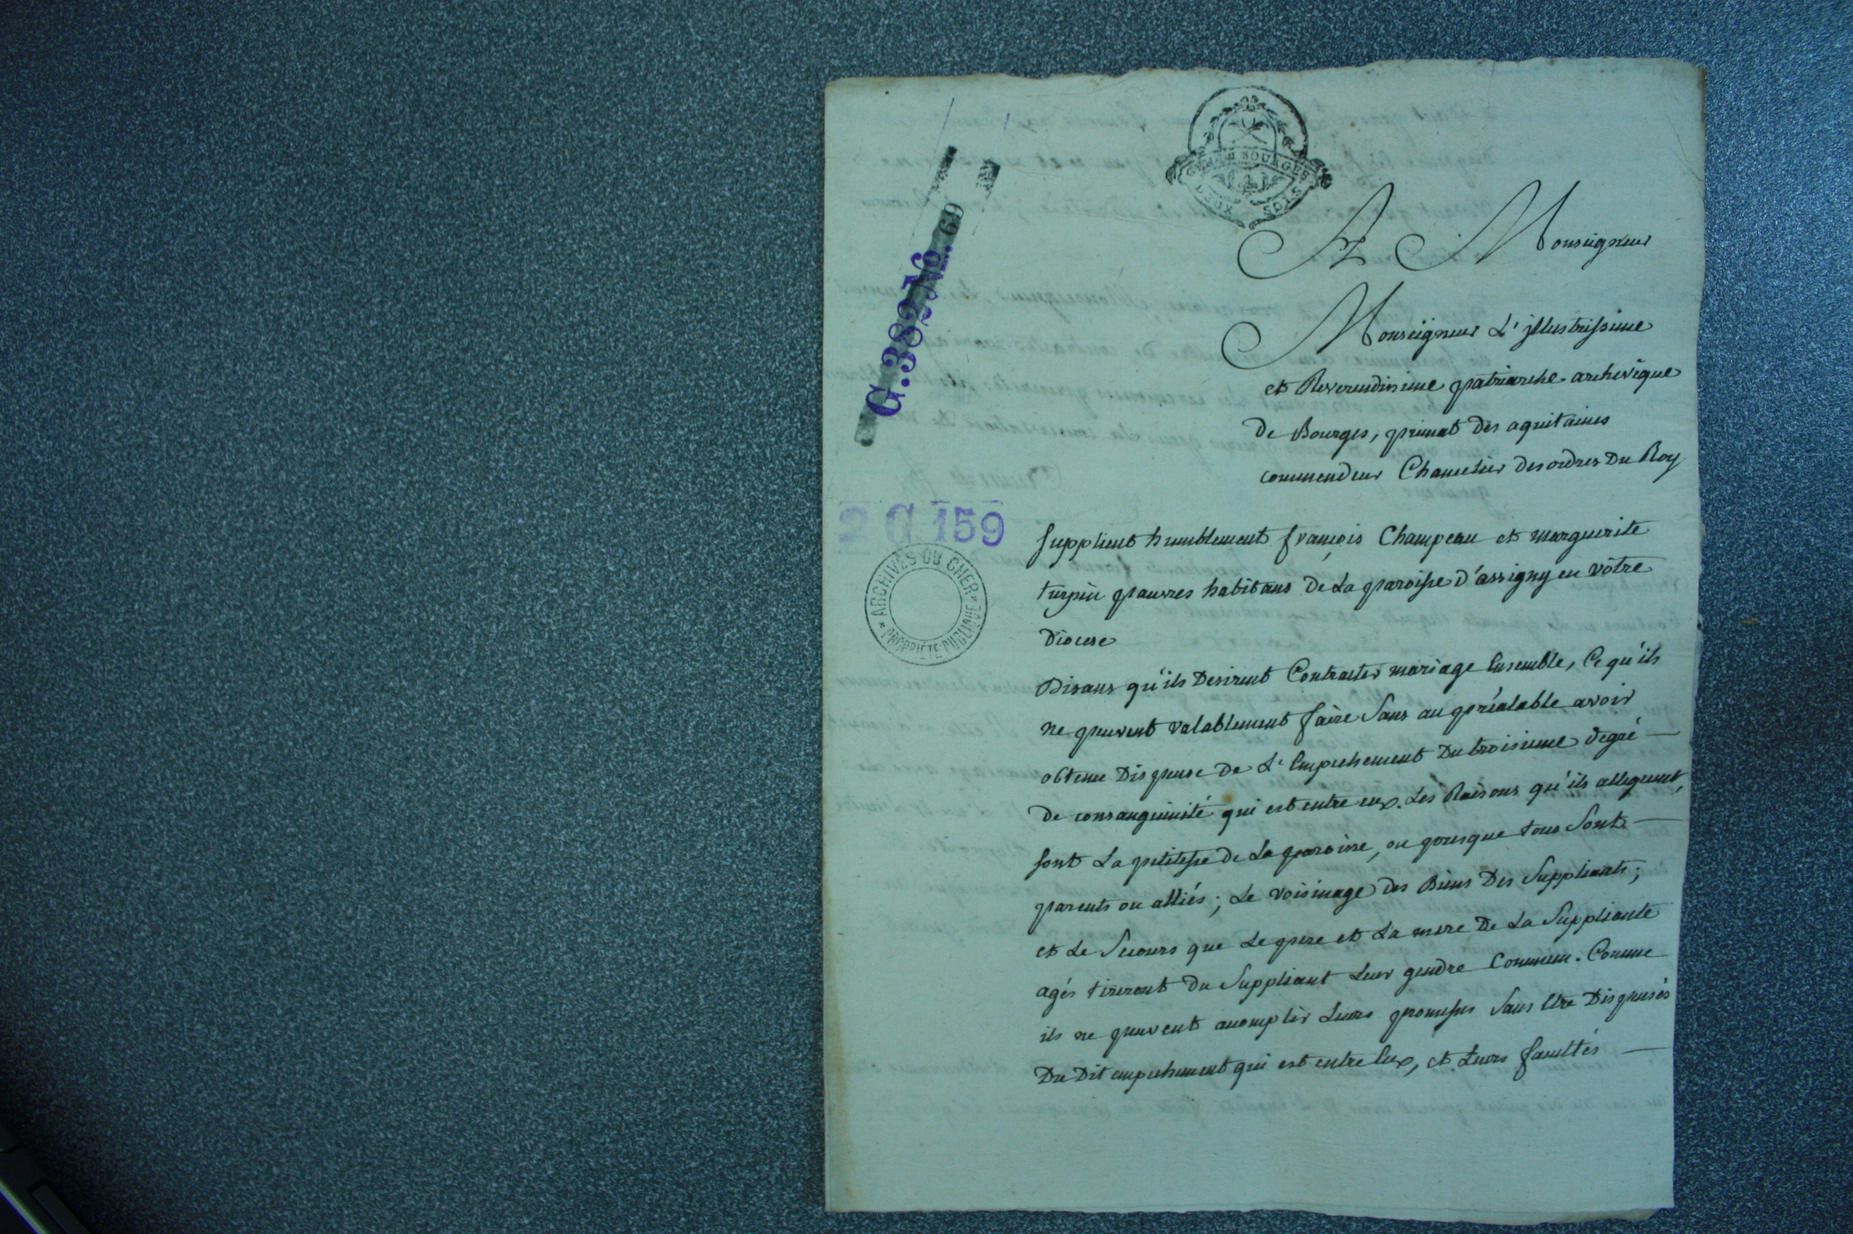 GEN. D. BOURGES
DEUX SOLS
A Monseigneur
Monseigneur L'jllustrissime
et Reverendissime patriarche archevêque
de Bourges, primat des aquitaines
commendeur Chancelier des ordres Du Roy
G. 382 No. 69
2 G 159
ARCHIVES DU CHER
PROPRIÉTÉ PUBLIQUE
Supplient humblement françois Champeau et marguerite
turpin pauvres habitans de La paroisse d'assigny en vôtre
Diocese
Disans qu'ils Desirent Contracter mariage Ensemble, Ce qu'ils
ne peuvent valablement faire Sans au préalable avoir
obtenu Dispense de L'Empechement Du troisieme degré
De consanguinité qui est entre eux. Les Raisons qu'ils alleguent,
sont La petitesse de La paroisse, ou presque tous Sont
parents ou alliés; Le voisinage des Biens Des Suppliants;
et Le Secours que Le pere et La mere De La Suppliante
agés tireront du Suppliant Leur gendre Commun. Comme
ils ne peuvent accomplir Leurs promesses Sans Etre Dispensés
Du Dit empechement qui est entre Eux, et Leurs facultés